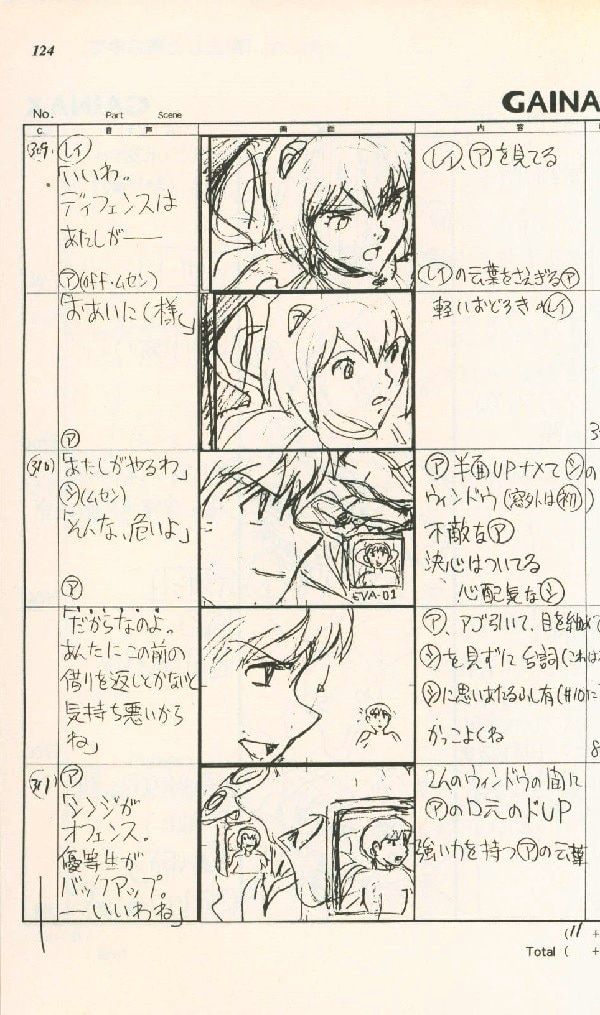 124
GAINA
No. Part Scene
C. 音声 画面 内容
309.
レイ
いいわ。
ディフェンスは
あたしが——
レイ、アを見てる
ア(off・ムセン)
レイの言葉をさえぎるア
「おあいにく様」
軽いおどろきのレイ
ア
310
「あたしがやるわ」
シ(ムセン)
「そんな、危いよ」
EVA-01
ア半面UPナメてシの
ウィンドウ(窓外は初)
不敵なア
決心はついてる
心配気なシ
ア
「だからなのよ。
あんたにこの前の
借りを返しとかないと
気持ち悪いから
ね」
ア、アゴ引いて、目を細めて
シを見ずに台詞(これは
シに思いあたるふし有(#10に
かっこよくね
311
ア
「シンジが
オフェンス。
優等生が
バックアップ。
—いいわね」
2人のウィンドウの間に
アの口元のドUP
強い力を持つアの言葉
(11 +
Total ( +